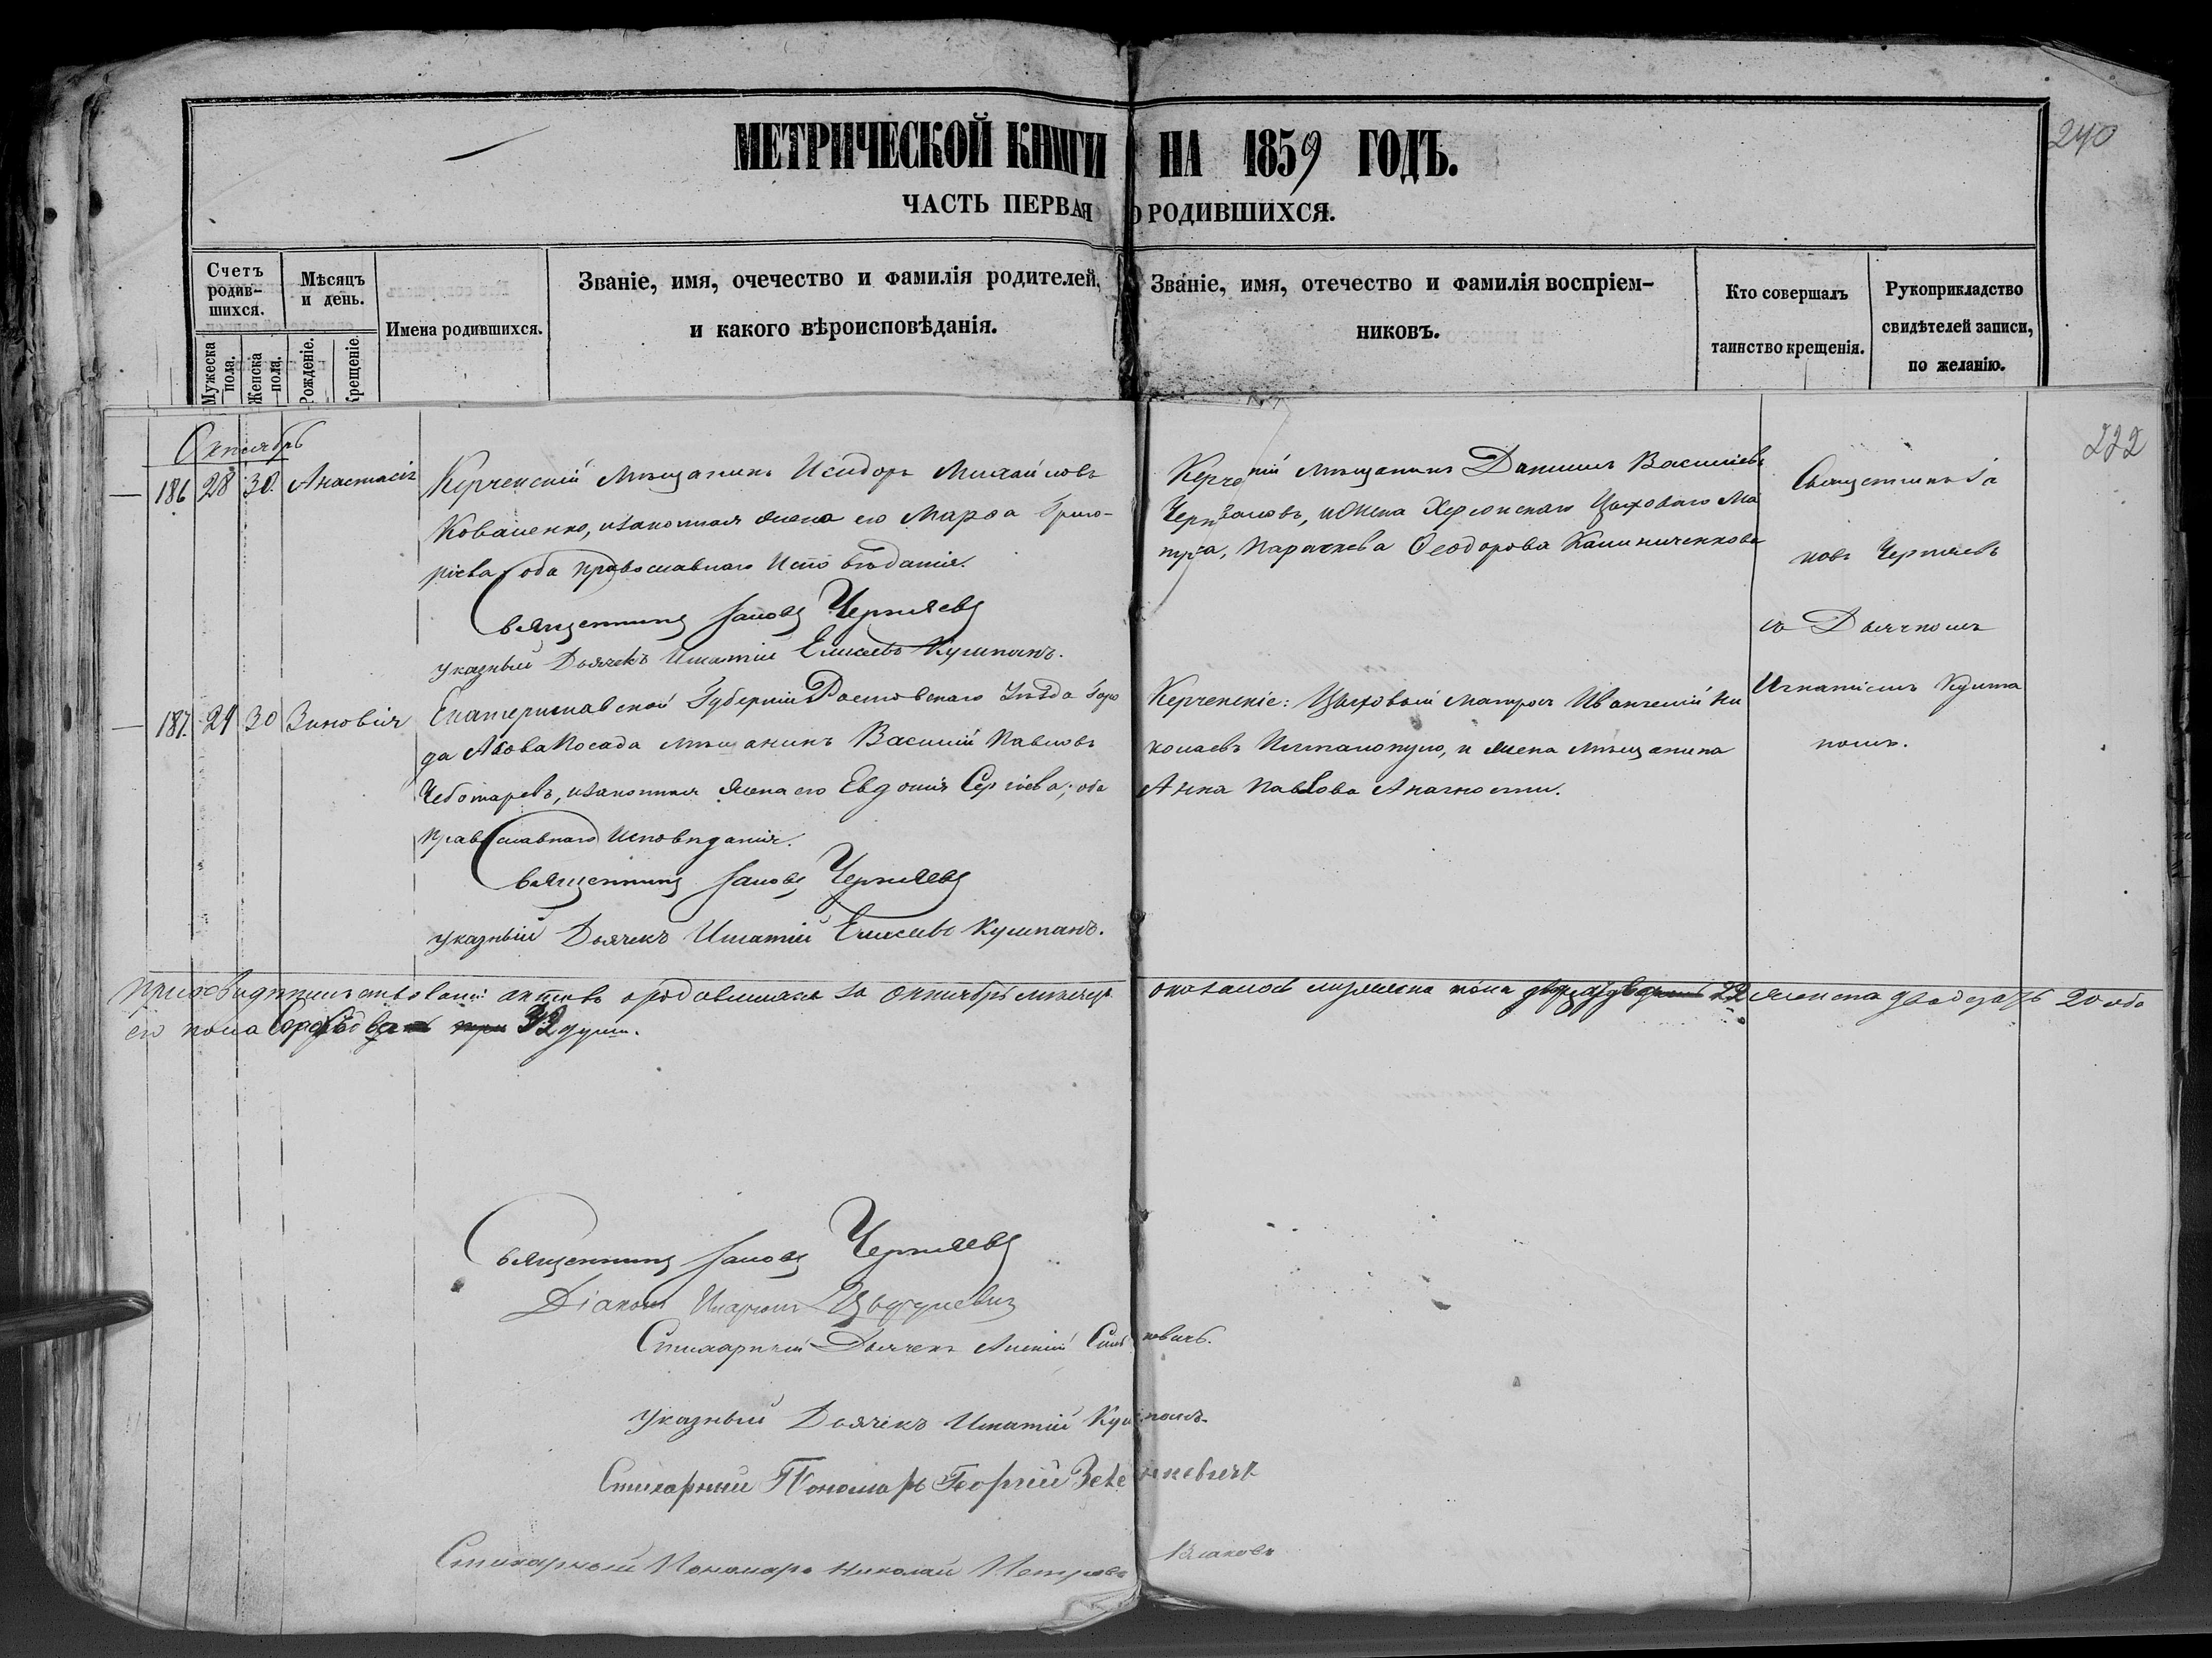 240
МЕТРИЧЕСКОЙ КНИГИ НА 1859 ГОДЪ.
ЧАСТЬ ПЕРВАЯ О РОДИВШИХСЯ.
Счетъ родив-шихся.
Мужеска пола.
Женска пола.
Мѣсяцъ и день.
Рожденіе.
Крещеніе.
Имена родившихся.
Званіе, имя, очечество и фамилія родителей,
и какого вѣроисповѣданія.
Званіе, имя, отечество и фамилія воспріем-
никовъ.
Кто совершалъ
таинство крещенія.
Рукоприкладство
свидѣтелей записи,
по желанію.
222
Октябрь
186 28 30. Анастасія
Керченскій мѣщанинъ Исидоръ Михайловъ
Коваленко, изаконная жена его Марѳа Григо-
ріева, оба православнаго Исповѣданія.
Священникъ Іаковъ Черняевъ
указный Дьячекъ Игнатій Елисеевъ Кулипанъ.
мѣщанинъ Даниилъ Васильевъ
иЖена Херсонскаго Цыховаго Ма
Параскева Ѳеодорова Калиниченкова
Священникъ Іа
ковъ Черняевъ
съ Дьячкомъ
Игнатіемъ
187. 29 30 Зиновія
Екатеринославской Губерніи Ростовскаго Уѣзда Горо
да Азова Посада мѣщанинъ Василій Павловъ
Чеботаревъ, изаконная жена его Евдокія Сергіева; оба
православнаго Исповѣданія.
Священникъ Іаковъ Черняевъ
указный Дьячекъ Игнатій Елисеевъ Кулипанъ.
Керченскіе: Цыховый матросъ Ивангелій Ни
колаевъ и жена мѣщанина
Анна Павлова
При освидѣтельствованіи актовъ о родившихся за Октябрь мѣсяцъ оказалось мужеска пола 22 женска двадцать 20 обо
его пола Сорокъ два 42 душъ.
Священникъ Іаковъ Черняевъ
Діаконъ
Стихарный Дьячекъ
указный Дьячекъ Игнатій Кулипанъ.
Стихарный Пономарь Георгій
Стихарный Пономарь Николай Петровъ